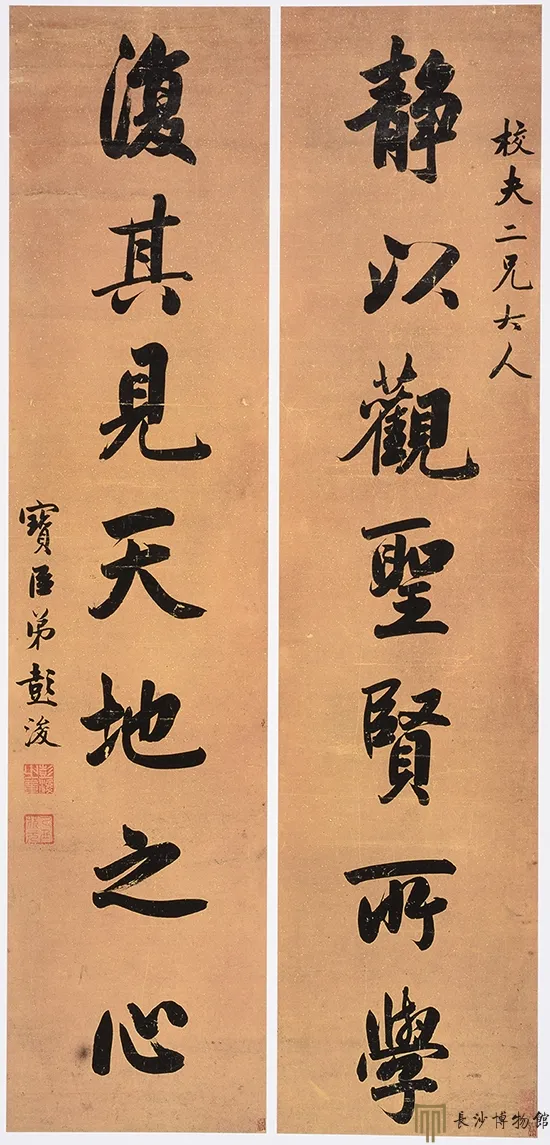 校夫二兄大人
静以觀聖賢所學
復其見天地之心
寶臣弟彭浚
長沙博物館